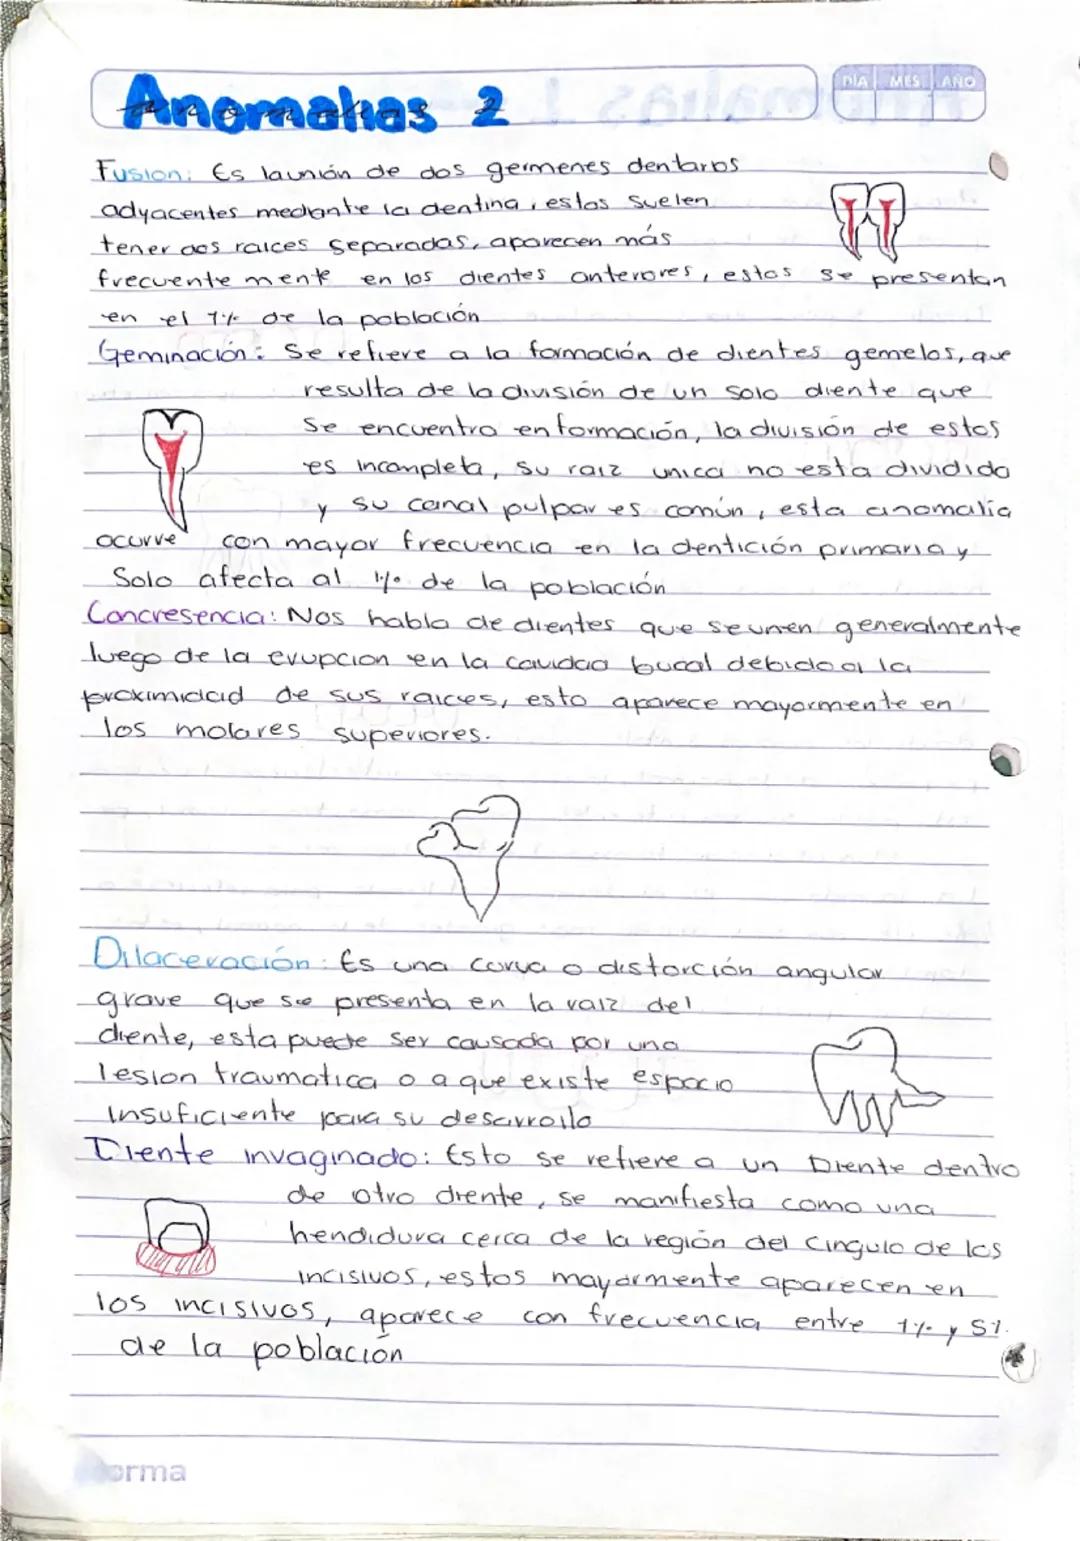 Anomalias 2
DÍA MES AÑO
Fusion: Es la unión de dos germenes dentarios
adyacentes mediante la dentina, estos suelen
tener dos raices separadas, aparecen más
frecuente mente en los dientes anteriores, estos se presentan
en el 1% de la población
Geminación: Se refiere a la formación de dientes gemelos, que
resulta de la división de un solo diente que
se encuentra en formación, la división de estos
es incompleta, su raiz unica no esta dividida
y su canal pulpar es común, esta anomalia
ocurre con mayor frecuencia en la dentición primaria y
Solo afecta al 1% de la población
Concresencia: Nos habla de dientes que se unen generalmente
luego de la erupcion en la cavidad bucal debido a la
proximidad de sus raices, esto aparece mayormente en
los molares superiores.
Dilaceración: Es una curva o distorción angular
grave que se presenta en la raiz del
diente, esta puede ser causada por una
lesion traumatica o a que existe espacio
insuficiente para su desarrollo
Diente invaginado: Esto se refiere a un Diente dentro
de otro diente, se manifiesta como una
hendidura cerca de la región del cingulo de los
incisivos, estos mayormente aparecen en
los incisivos, aparece con frecuencia entre 1% y 5%
de la población
orma